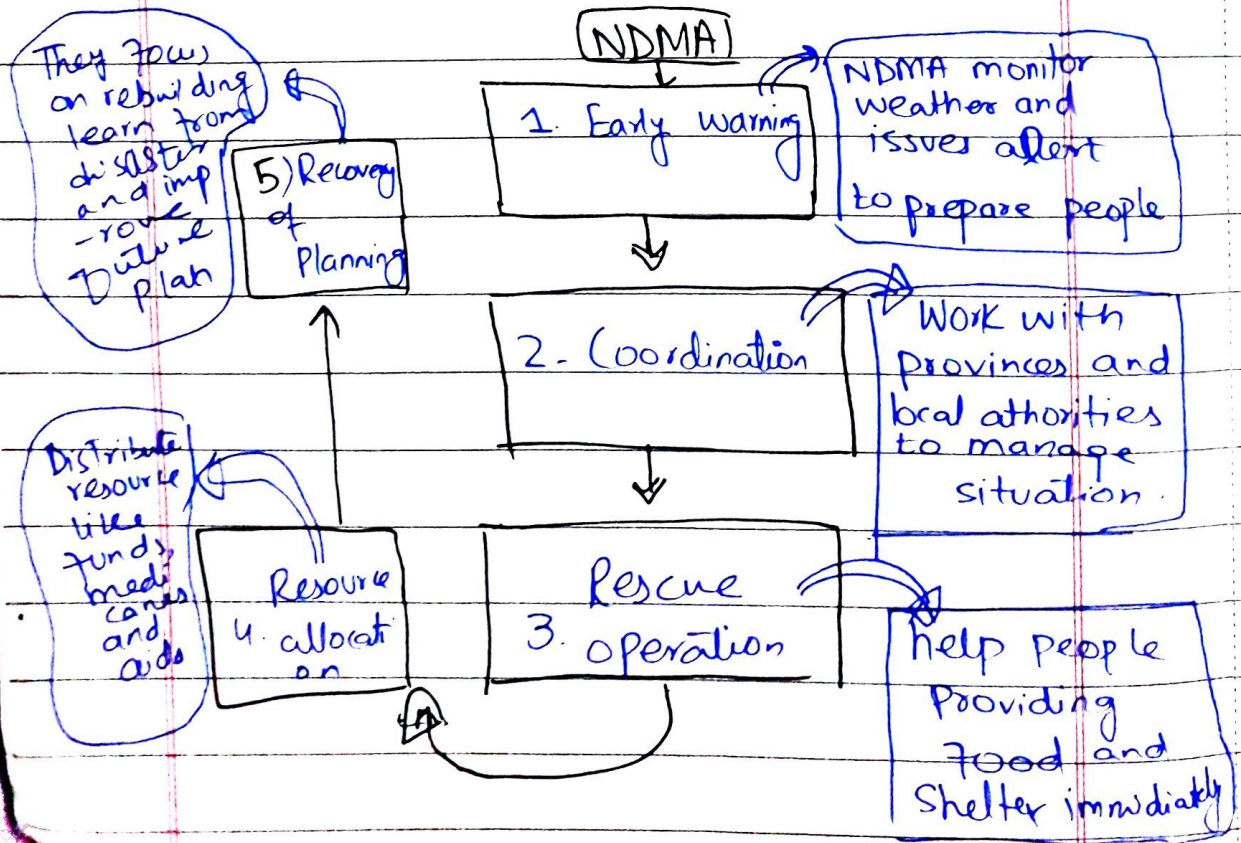 NDMA
1. Early warning
NDMA monitor
weather and
issues alert
to prepare people
2- Coordination
Work with
provinces and
local athorities
to manage
situation.
Rescue
3. operation
help people
Providing
food and
Shelter immdiately
Resource
4. allocati
on
Distribute
resource
like
funds,
medi
canes
and
aids
5) Recovery
of
Planning
They focus
on rebuilding
learn from
disaster
and imp
-rove
future
plan